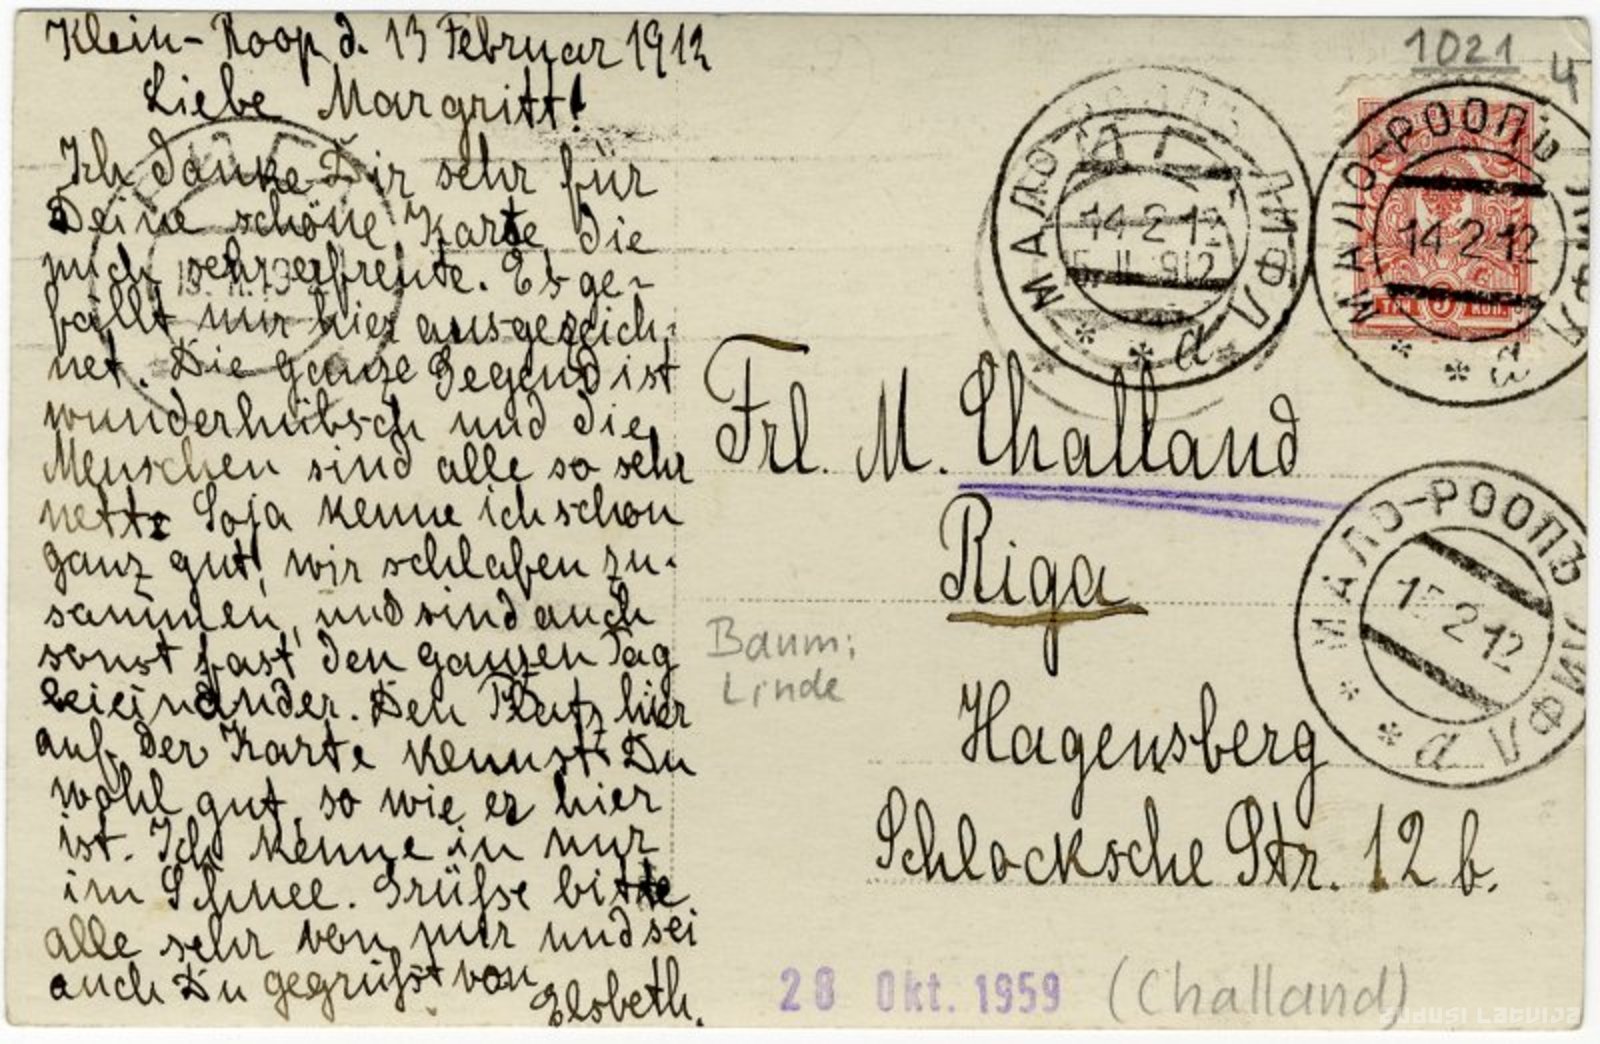 Klein-Roop d. 13 Februar 1912
Liebe Margritt!
Ich danke Dir sehr für
Deine schöne Karte, die
mich sehr erfreute. Es ge-
fällt mir hier ausgezeich-
net. Die ganze Gegend ist
wunderhübsch und die
Menschen sind alle so sehr
nett. Soja kenne ich schon
ganz gut, wir schlafen zu-
sammen, und sind auch
sonst fast den ganzen Tag
beieinander. Den Platz hier
auf der Karte kennst Du
wohl gut, so wie er hier
ist. Ich kenne in nur
im Schnee. Grüsse bitte
alle sehr von mir und sei
auch Du gegrüßt von
Elsbeth.
1021
4
МАЛО-РООПЪ ЛИФЛ.
14 2 12
а
МАЛО-РООПЪ ЛИФЛ.
14 2 12
а
ТРИ 3 КОП.
Frl. M. Challand
Riga
МАЛО-РООПЪ ЛИФЛ.
15 2 12
а
Baum:
Linde
Hagensberg
Schlocksche Str. 12 b.
28 Okt. 1959 (Challand)
zudusi Latvija